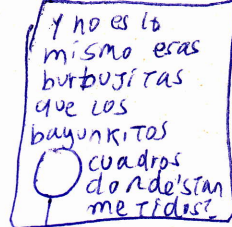 y no es lo
mismo eras
burbujitas
que los
bayunkitos
cuadros
donde'stan
metidos?